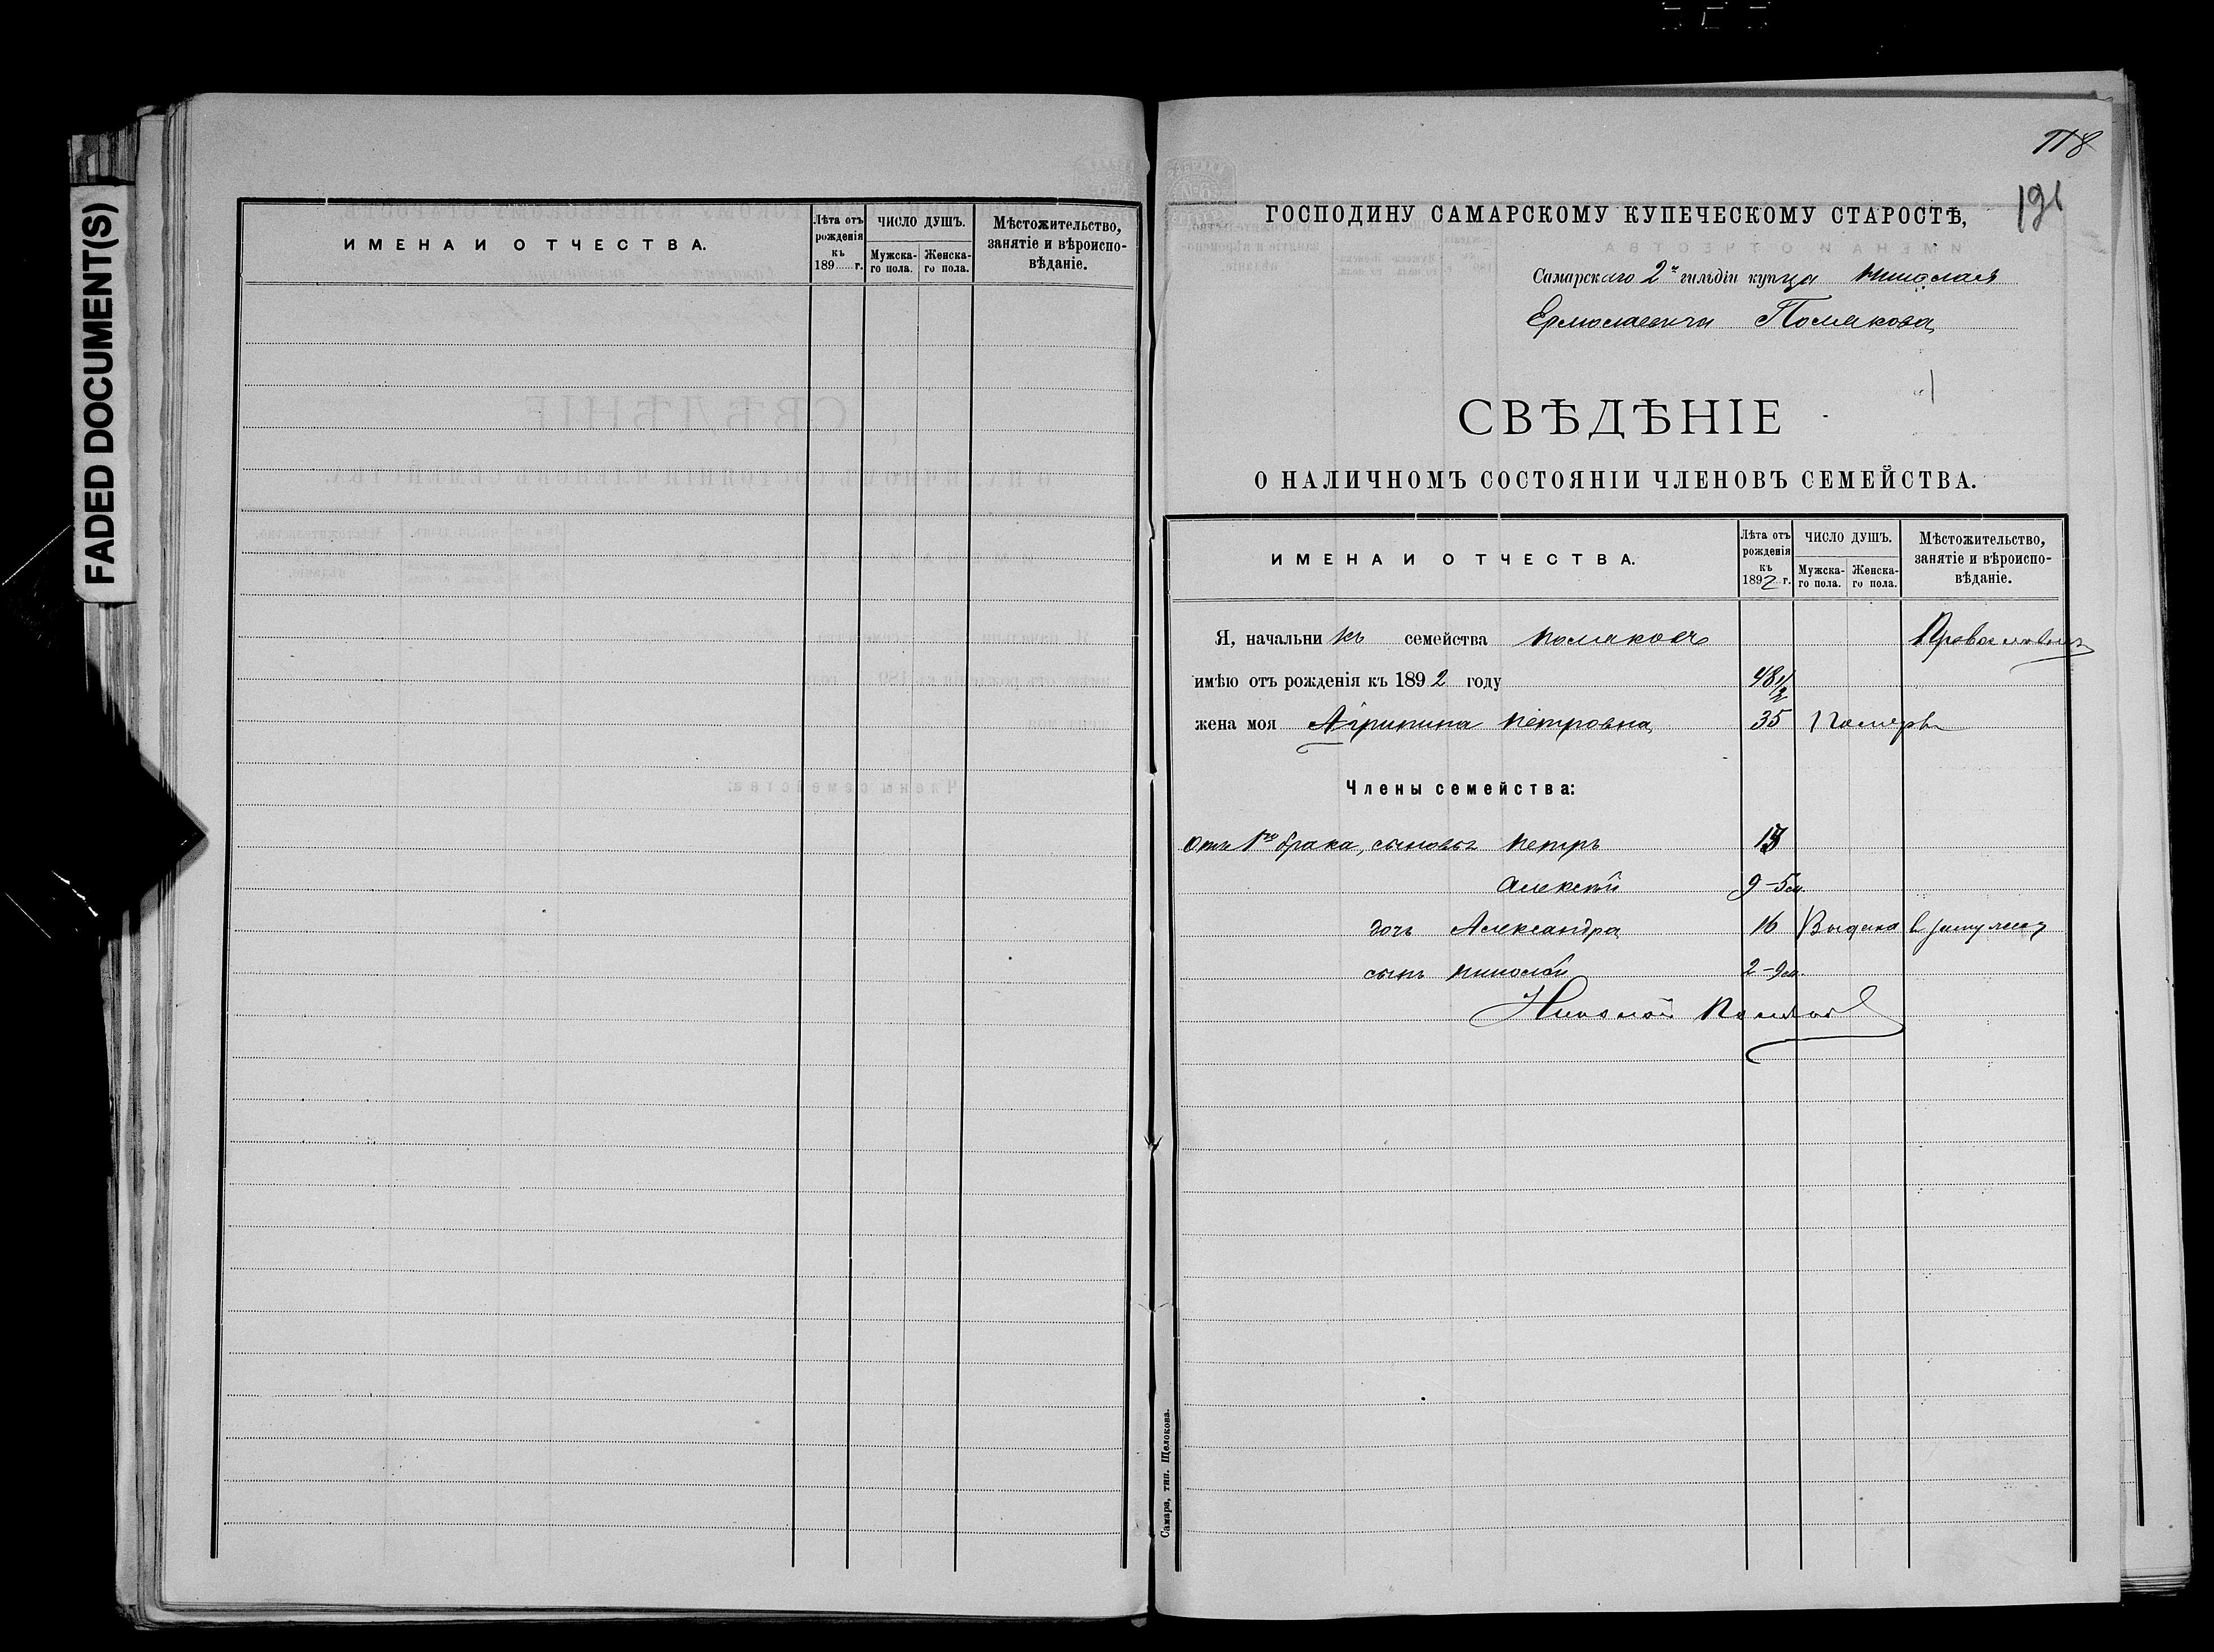 FADED DOCUMENT(S)
ИМЕНА И ОТЧЕСТВА.
Лѣта отъ рожденія къ 189 г.
ЧИСЛО ДУШЪ.
Мужска-го пола.
Женска-го пола.
Мѣстожительство, занятіе и вѣроиспо-вѣданіе.
118
191
ГОСПОДИНУ САМАРСКОМУ КУПЕЧЕСКОМУ СТАРОСТѢ,
Самарскаго 2й гильдіи купца Николая
Ермолаевича Полякова
СВѢДѢНІЕ
О НАЛИЧНОМЪ СОСТОЯНІИ ЧЛЕНОВЪ СЕМЕЙСТВА.
ИМЕНА И ОТЧЕСТВА.
Лѣта отъ рожденія къ 1892 г.
ЧИСЛО ДУШЪ.
Мужска-го пола.
Женска-го пола.
Мѣстожительство, занятіе и вѣроиспо-вѣданіе.
Я, начальникъ семейства Поляковъ Православн
имѣю отъ рожденія къ 1892 году 48 1/2
жена моя Агрипина Петровна 35
Члены семейства:
Отъ 1го брака, сыновья Петръ
Алексѣй 9-5м.
дочь Александра 16 Выдана в замужес
сынъ Николай 2-9м.
Николай Поляков
Самара, тип. Щелокова.